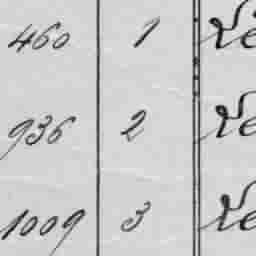 460 1
936 2
1009 3